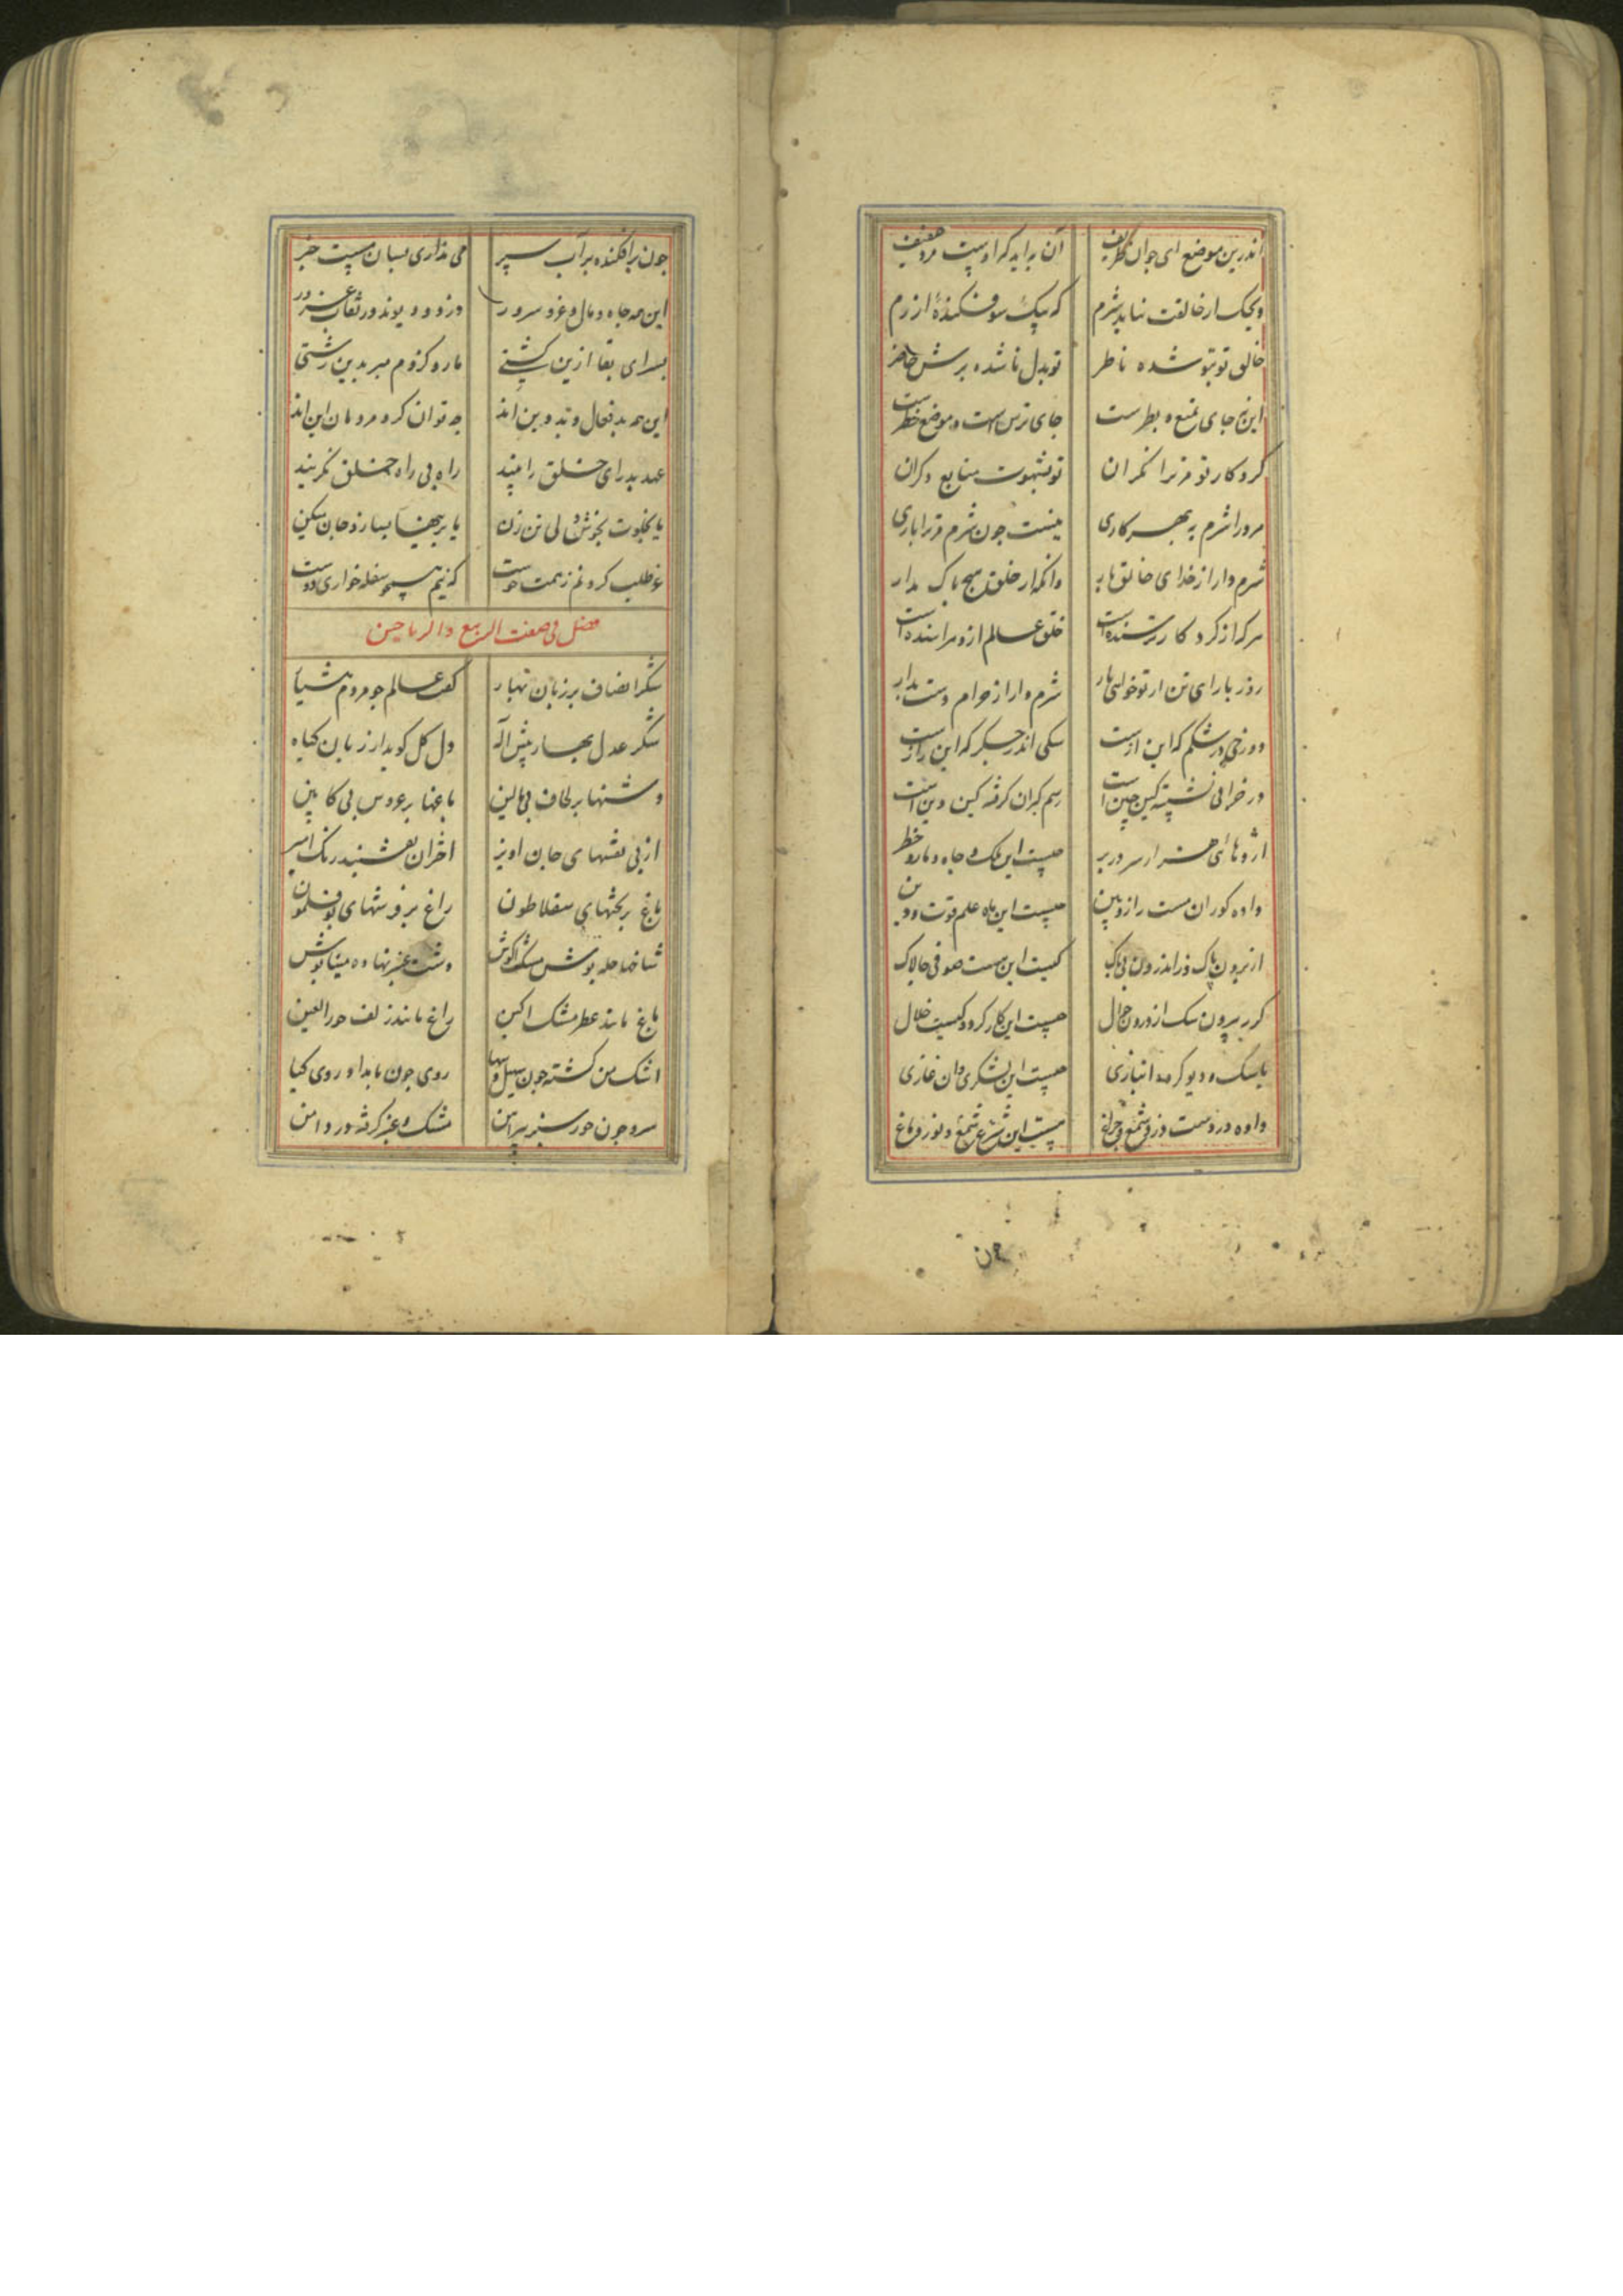 اندرین موضع ای جوان ظریف آن براید که او ست مرد عفیف
ویحک از خالقت نیاید شرم که یک سو فکندهٔ ازرم
خالق تو بتو شده ناظر تو بدل ناشده برش حاضر
این نه جای تمتع و بطرست جای ترس است و موضع خطرست
کردکار تو مر ترا نکران تو بشهوت متابع دکران
مر ترا شرم به بهر کاری نیست چون شرم مر ترا یاری
شرم دار از خدای خالق بار وانکه از خلق هیچ باک مدار
هرکه از کردکار ترسنده است خلق عالم ازو هراسنده است
روز بار ای تن ار تو خواهی بار شرم دار از حرام دست بدار
دوزخی در شکم که این ازست سکی اندر جکر که این رازست
در خرابی نشسته کین چین است رسم کبران کرفته کین دین است
اژدهائی هزار سر در بر چیست این ملک و جاه و مار و خطر
داده کوران مست را زوبین چیست این ماه علم قوت دین
از برون پاک وز اندرون بی باک کیست این هست صوفی چالاک
کرر بیرون سک از درون چوال چیست این کار کرد و کیست حلال
با سک و دیو کرده انبازی چیست این لشکری و آن غازی
داده در دست دزد شمع و چراغ چیست این شرع شمع و نور و باغ
چون برافکنده بر آب سپر می نداری بسان مست خبر
این همه جاه و مال و عز و سرور دزد و دیوند در نقاب غرور
بسرای بقا ازین کشتی مار و کژدم مبر بدین زشتی
این همه بد فعال و بد دین اند چه توان کرد مردمان این اند
عهد بد رای خلق را مپسند راه بی راه خلق نکزینند
یا بخلوت بخوش دلی تن زن
غو طلب کردنم زهمت خوست که نیم همچو سفله خواری دوست
فصل فی صفت الربیع والریاحین
شکر انصاف بر زبان بهار کفت عالم چو مردم هشیار
شکر عدل بهار پیش اله دل کل کوید از زبان کیاه
دشتها بر لحاف بی بالین باغها بر عروس بی کابین
از پی نقشهای جان اویز اختران نقشبند رنک امیز
باغ بر تختهای سقلاطون راغ بر فرشهای بوقلمون
شاخها حله پوش مشک اکوش دشت عنبر نهاده مینا پوش
باغ مانند عطر مشک اکین راغ مانند زلف حور العین
اشک من کشته چون سهیل و سها روی چون بامداد روی کیا
سرو چون حور سبز پیراهن مشک و عنبر کرفته در دامن